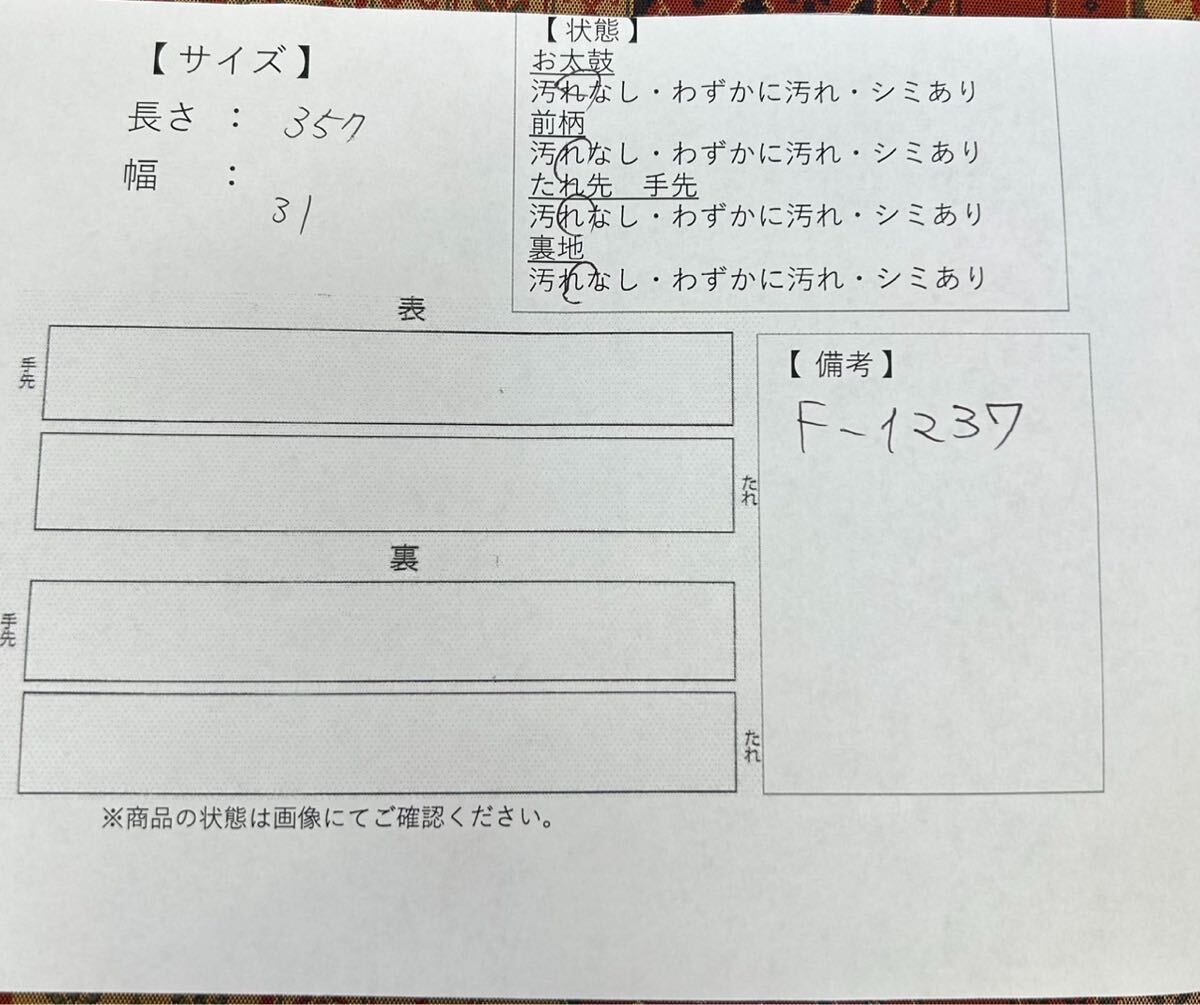 【 サイズ 】
長さ ： 357
幅 ：
31
【 状態 】
お太鼓
汚れなし・わずかに汚れ・シミあり
前柄
汚れなし・わずかに汚れ・シミあり
たれ先　手先
汚れなし・わずかに汚れ・シミあり
裏地
汚れなし・わずかに汚れ・シミあり
表
手先
たれ
裏
手先
たれ
【 備考 】
F-1237
※商品の状態は画像にてご確認ください。